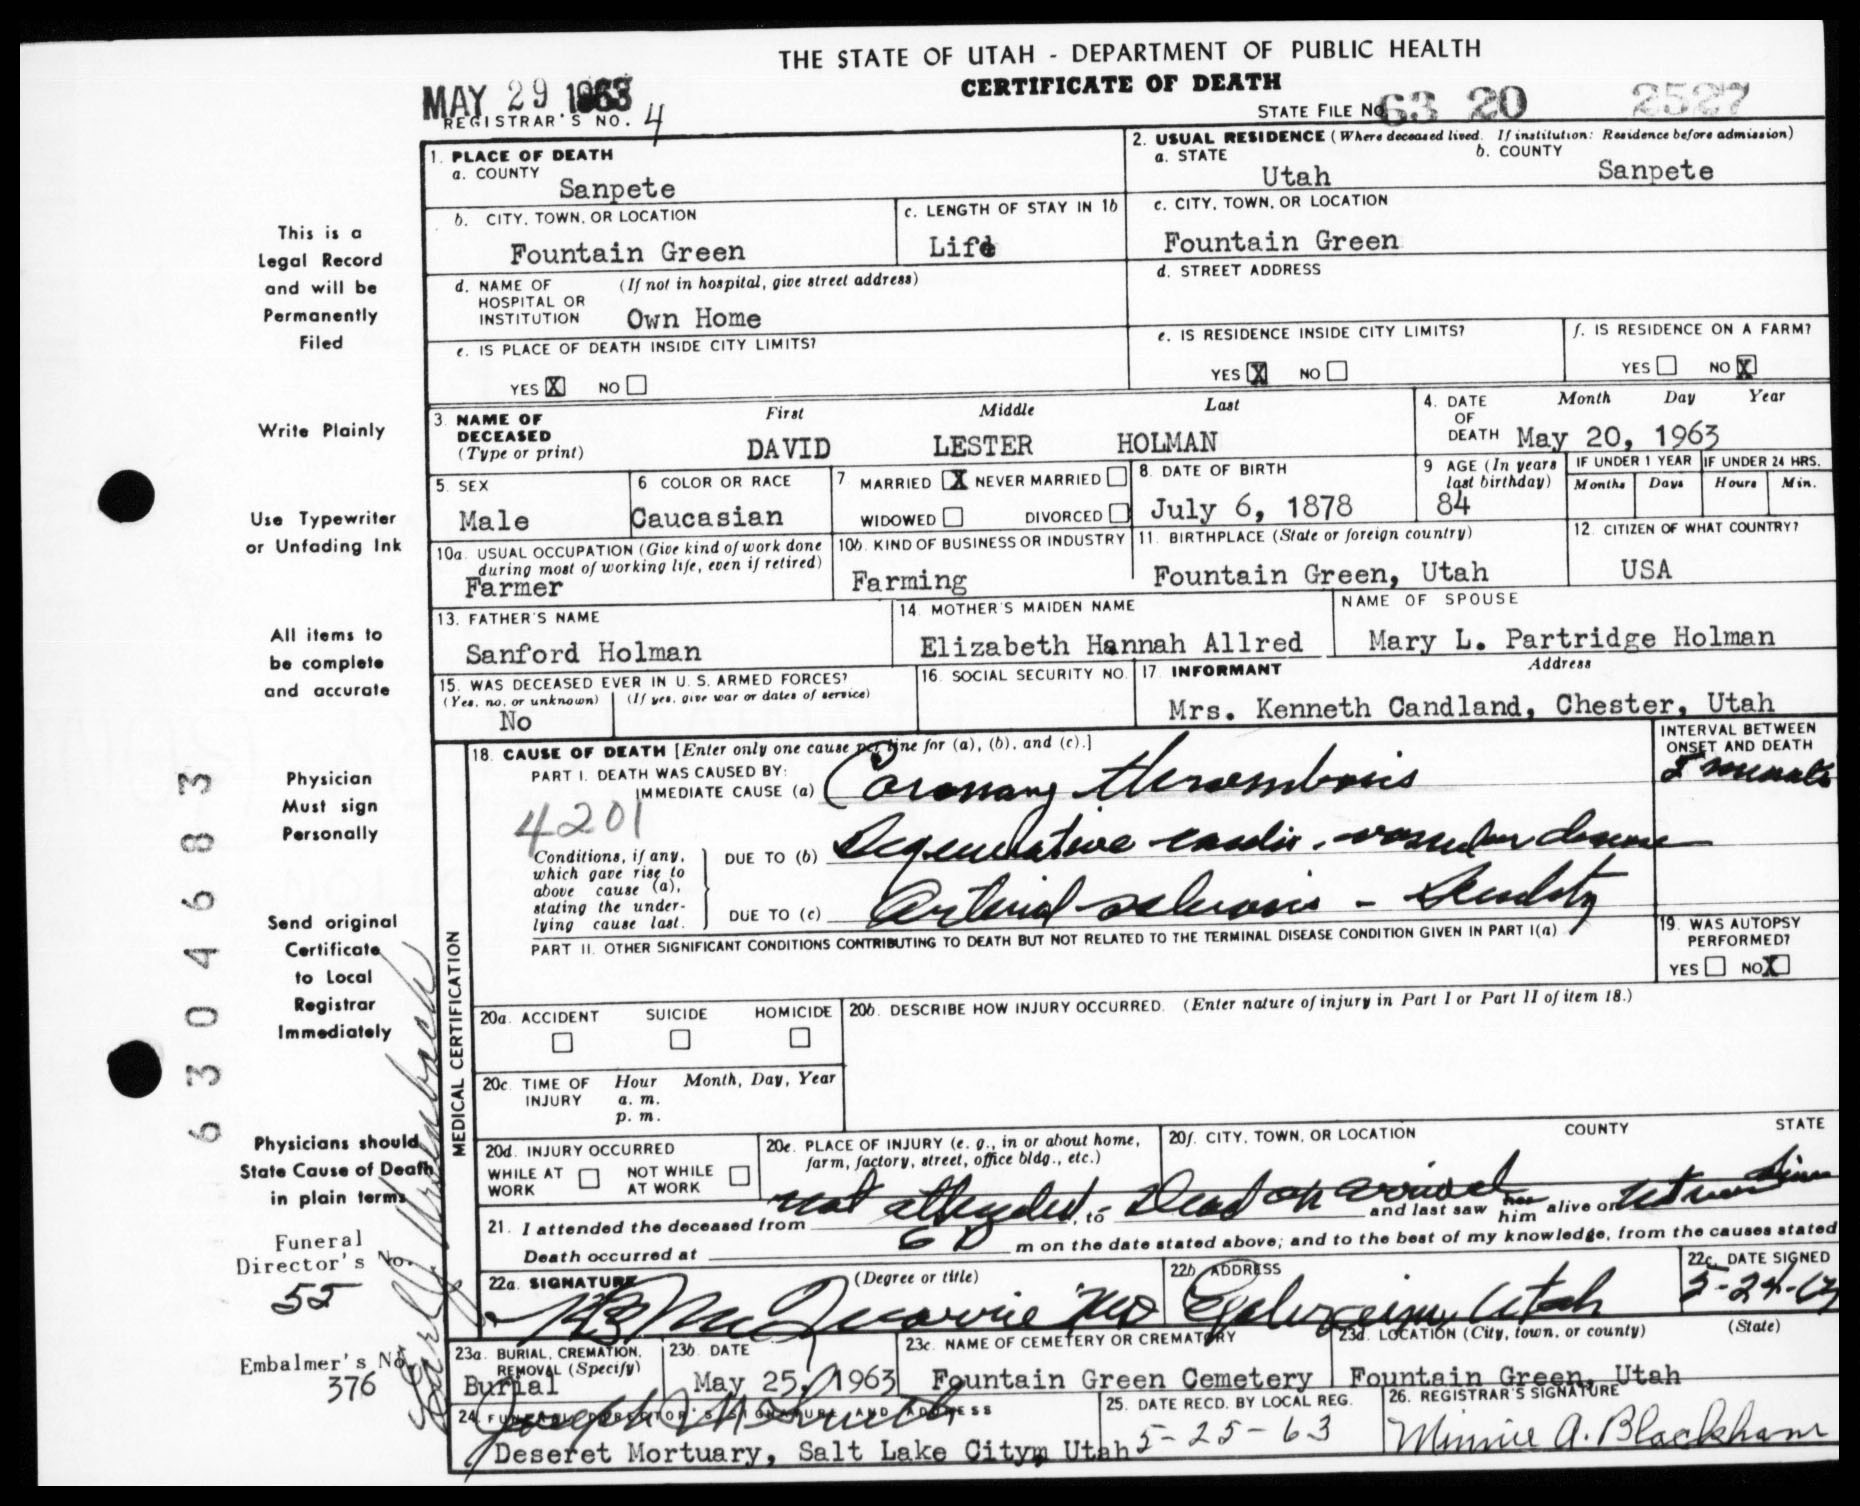 THE STATE OF UTAH - DEPARTMENT OF PUBLIC HEALTH
CERTIFICATE OF DEATH
MAY 29 1963
REGISTRAR'S NO. 4
STATE FILE NO. 63 20 2527
1. PLACE OF DEATH
a. COUNTY
Sanpete
2. USUAL RESIDENCE (Where deceased lived. If institution: Residence before admission)
a. STATE
Utah
b. COUNTY
Sanpete
b. CITY, TOWN, OR LOCATION
Fountain Green
c. LENGTH OF STAY IN 1b
Life
c. CITY, TOWN, OR LOCATION
Fountain Green
d. NAME OF HOSPITAL OR INSTITUTION
(If not in hospital, give street address)
Own Home
d. STREET ADDRESS
e. IS PLACE OF DEATH INSIDE CITY LIMITS?
YES X NO
e. IS RESIDENCE INSIDE CITY LIMITS?
YES X NO
f. IS RESIDENCE ON A FARM?
YES NO X
3. NAME OF DECEASED
(Type or print)
First Middle Last
DAVID LESTER HOLMAN
4. DATE OF DEATH
Month Day Year
May 20, 1963
5. SEX
Male
6 COLOR OR RACE
Caucasian
7 MARRIED X NEVER MARRIED
WIDOWED DIVORCED
8. DATE OF BIRTH
July 6, 1878
9 AGE (In years last birthday)
84
IF UNDER 1 YEAR
Months Days
IF UNDER 24 HRS.
Hours Min.
10a. USUAL OCCUPATION (Give kind of work done
during most of working life, even if retired)
Farmer
10b. KIND OF BUSINESS OR INDUSTRY
Farming
11. BIRTHPLACE (State or foreign country)
Fountain Green, Utah
12. CITIZEN OF WHAT COUNTRY?
USA
13. FATHER'S NAME
Sanford Holman
14. MOTHER'S MAIDEN NAME
Elizabeth Hannah Allred
NAME OF SPOUSE
Mary L. Partridge Holman
15. WAS DECEASED EVER IN U.S. ARMED FORCES?
(Yes, no, or unknown) (If yes, give war or dates of service)
No
16. SOCIAL SECURITY NO.
17. INFORMANT Address
Mrs. Kenneth Candland, Chester, Utah
MEDICAL CERTIFICATION
18. CAUSE OF DEATH [Enter only one cause per line for (a), (b), and (c).]
INTERVAL BETWEEN ONSET AND DEATH
PART I. DEATH WAS CAUSED BY:
IMMEDIATE CAUSE (a) Coronary thrombosis
4201
Conditions, if any, which gave rise to above cause (a), stating the underlying cause last.
DUE TO (b) Degenerative cardio-vascular disease
DUE TO (c) Arterial sclerosis - Senility
PART II. OTHER SIGNIFICANT CONDITIONS CONTRIBUTING TO DEATH BUT NOT RELATED TO THE TERMINAL DISEASE CONDITION GIVEN IN PART I(a)
19. WAS AUTOPSY PERFORMED?
YES NO X
20a. ACCIDENT SUICIDE HOMICIDE
20b. DESCRIBE HOW INJURY OCCURRED. (Enter nature of injury in Part I or Part II of item 18.)
20c. TIME OF INJURY
Hour Month, Day, Year
a. m.
p. m.
20d. INJURY OCCURRED
WHILE AT WORK NOT WHILE AT WORK
20e. PLACE OF INJURY (e. g., in or about home,
farm, factory, street, office bldg., etc.)
20f. CITY, TOWN, OR LOCATION COUNTY STATE
21. I attended the deceased from not attended, to Dead on arrival and last saw her him alive on
Death occurred at m on the date stated above; and to the best of my knowledge, from the causes stated
22a. SIGNATURE (Degree or title)
McQuarrie MD
22b. ADDRESS
Ephraim, Utah
22c. DATE SIGNED
5-24-63
23a. BURIAL, CREMATION, REMOVAL (Specify)
Burial
23b. DATE
May 25, 1963
23c. NAME OF CEMETERY OR CREMATORY
Fountain Green Cemetery
23d. LOCATION (City, town, or county) (State)
Fountain Green, Utah
24. FUNERAL DIRECTOR'S SIGNATURE AND ADDRESS
Joseph
Deseret Mortuary, Salt Lake City, Utah
25. DATE RECD. BY LOCAL REG.
5-25-63
26. REGISTRAR'S SIGNATURE
Minnie A. Blackham
This is a
Legal Record
and will be
Permanently
Filed
Write Plainly
Use Typewriter
or Unfading Ink
All items to
be complete
and accurate
Physician
Must sign
Personally
Send original
Certificate
to Local
Registrar
Immediately
Physicians should
State Cause of Death
in plain terms
Funeral
Director's No.
55
Embalmer's No.
376
6304683